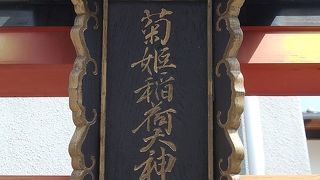 菊姫稲荷大神